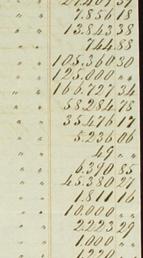 " " 7.856 18
" " 13.843 38
" " 744.88
" " 105.360 30
" " 125.000 " "
" " 166.727 34
" " 58.284 78
" " 35.476 17
" " 5.236 06
" " 49 " "
" " 6.390 85
" " 45.380 27
" " 1.811 16
" " 10.000 " "
" " 2.223 29
" " 1.000 " "
" " 1.220 " "